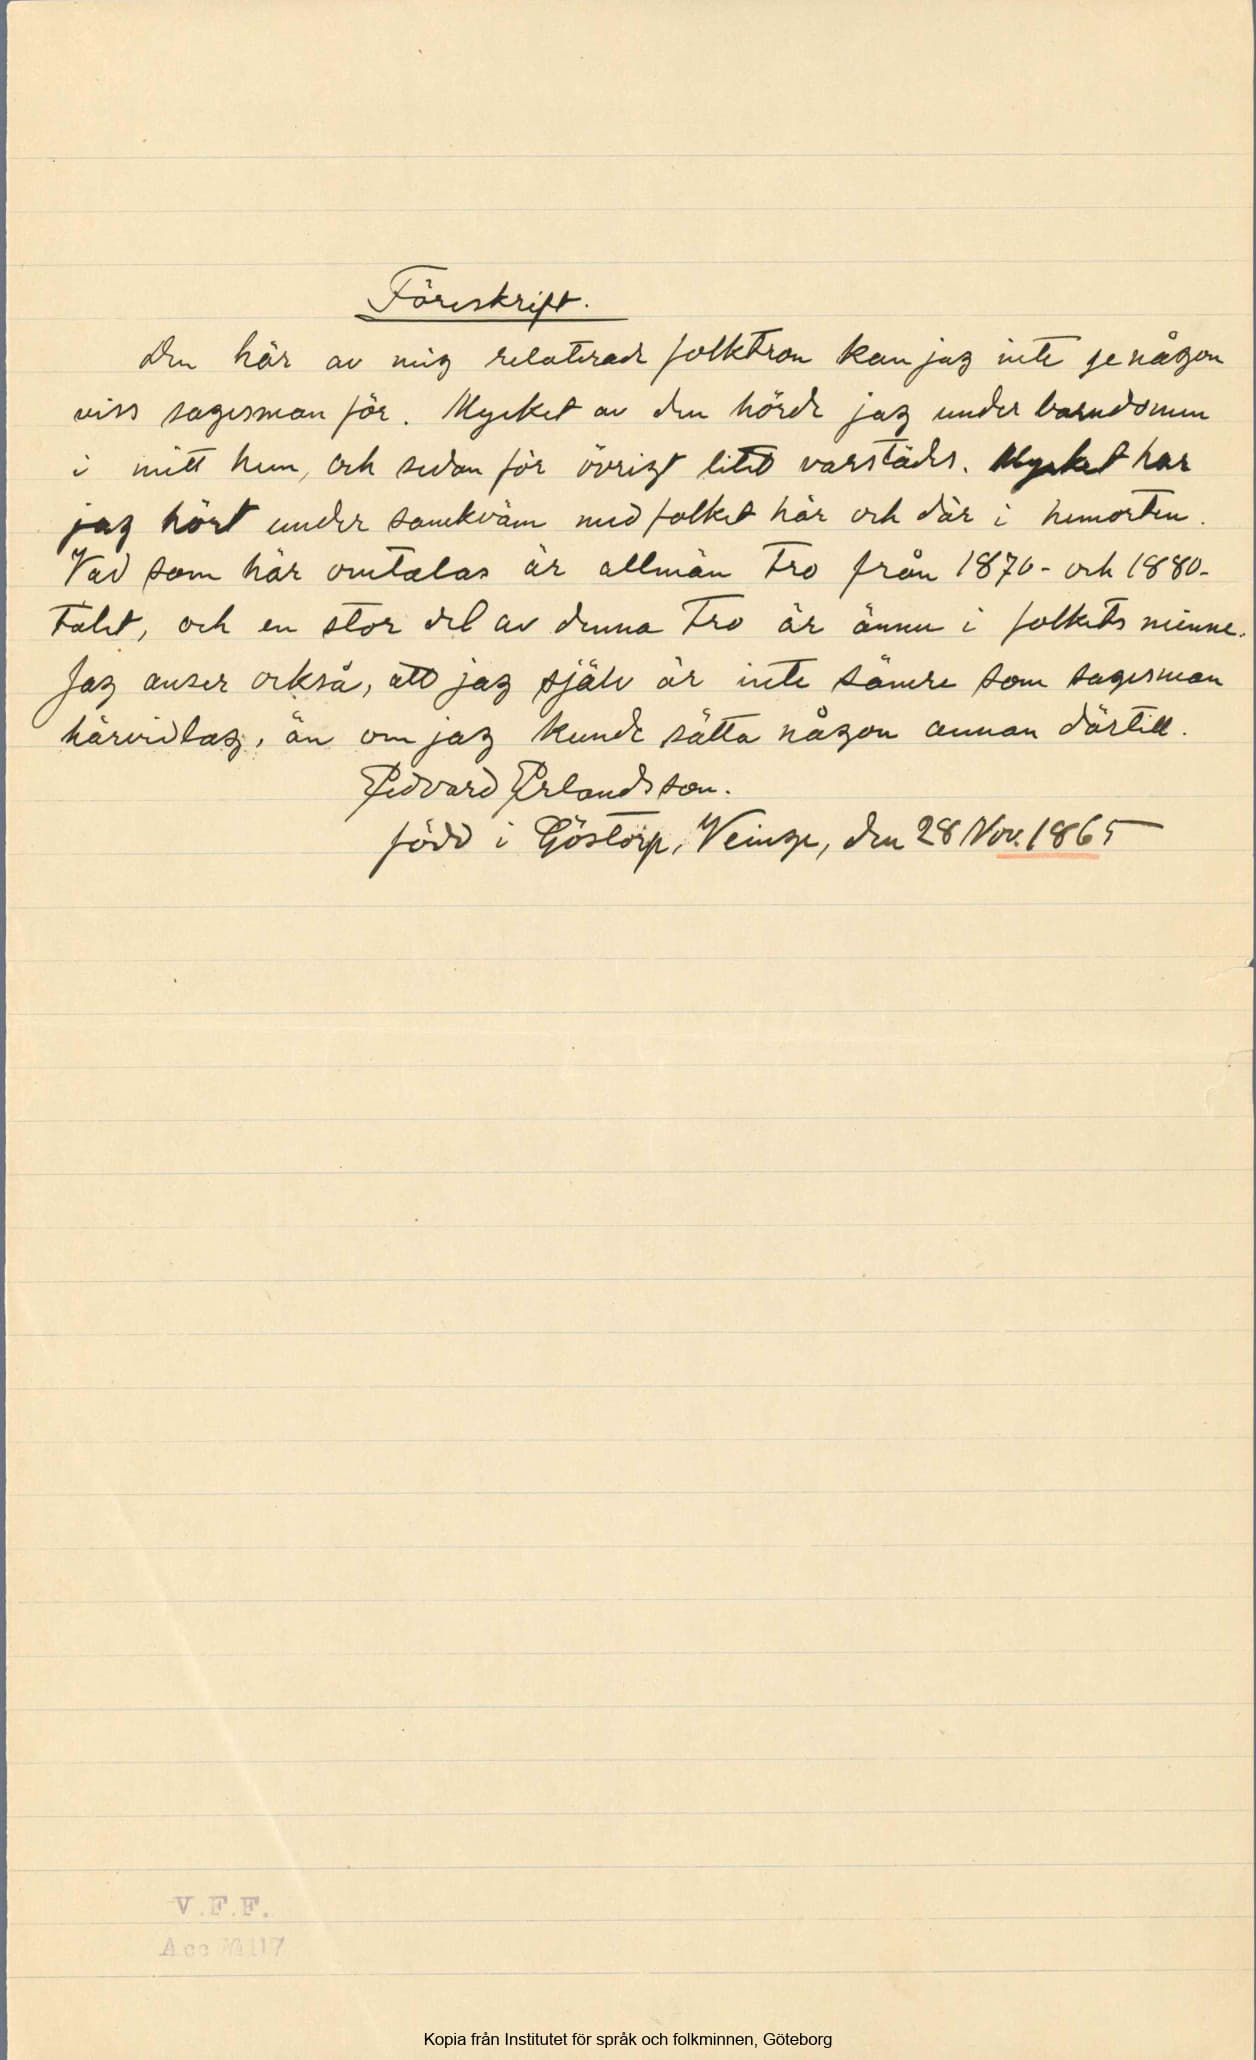 Föreskrift.
Den här av mig relaterade folktron kan jag inte ge någon
viss sagesman för. Mycket av den hörde jag under barndomen
i mitt hem, och sedan för övrigt litet varstädes. Mycket har
jag hört under samkväm med folket här och där i hemorten.
Vad som här omtalas är allmän tro från 1870- och 1880-
talet, och en stor del av denna tro är ännu i folkets minne.
Jag anser också, att jag själv är inte sämre som sagesman
härvidlag, än om jag kunde sätta någon annan därtill.
Edvard Erlandsson.
född i Göstorp, Veinge, den 28 Nov. 1865
V.F.F.
Acc № 117
Kopia från Institutet för språk och folkminnen, Göteborg